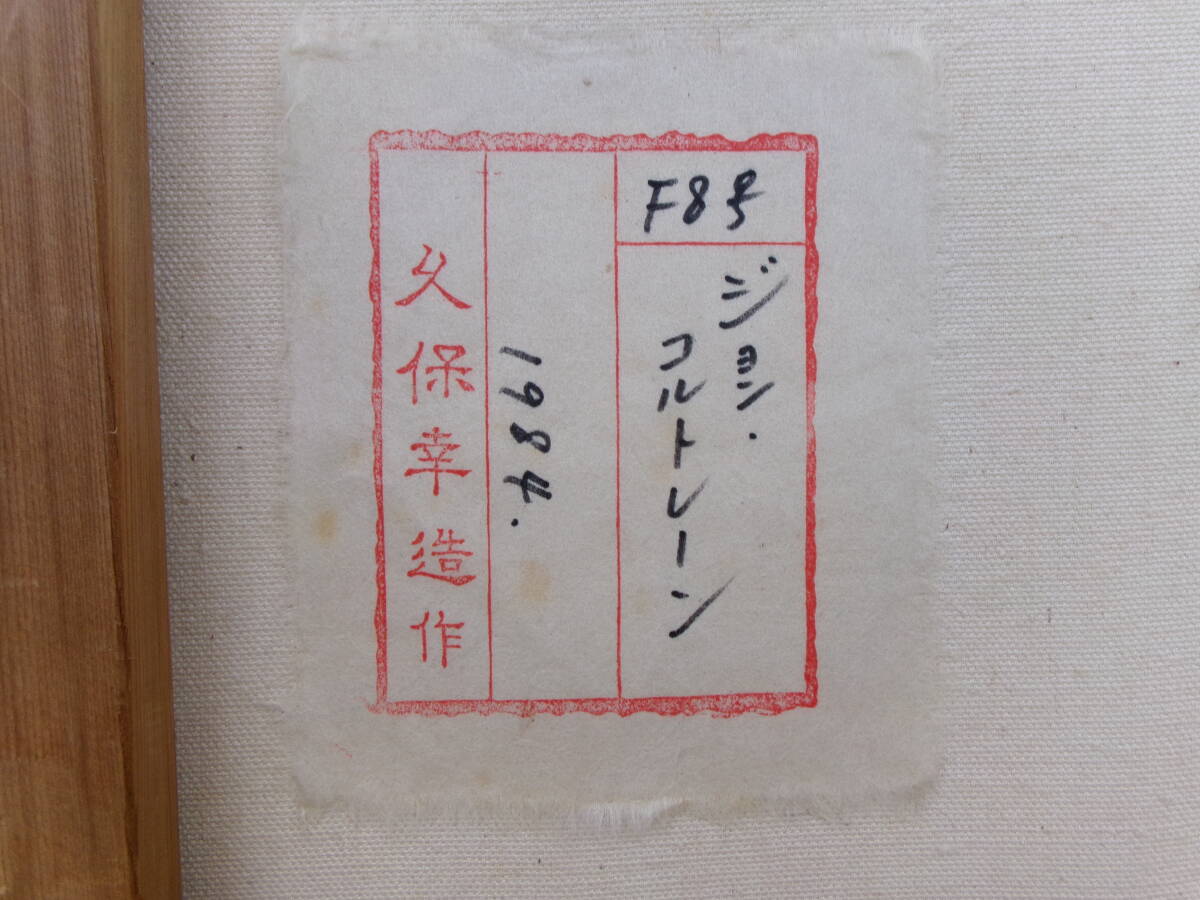 F8号
ジョン・
コルトレーン
1984.
久保幸造作